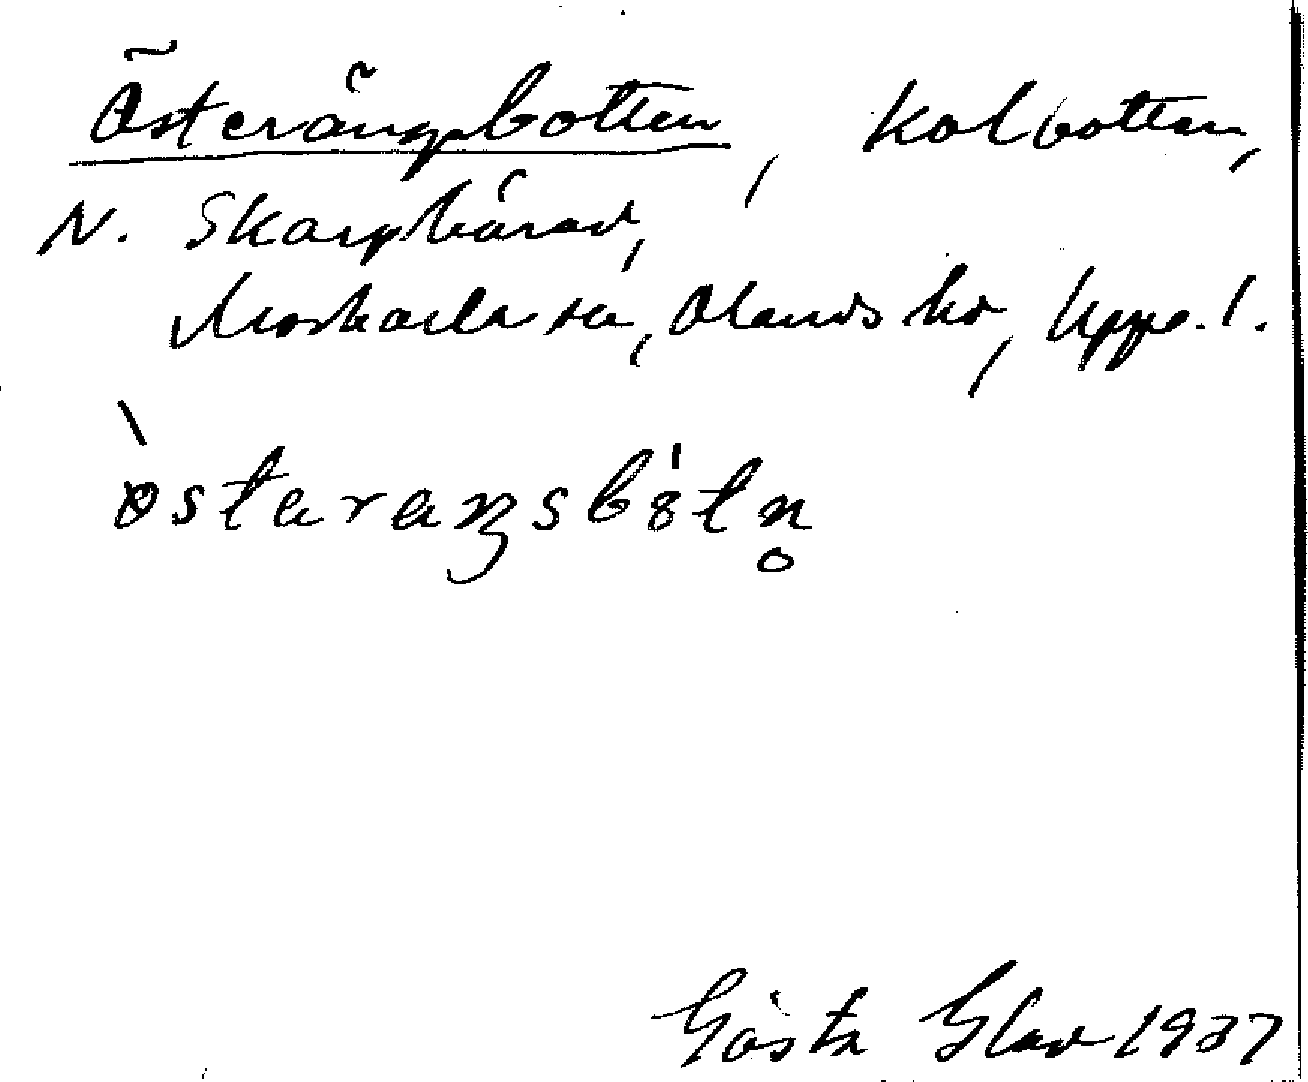 Österängsbotten, kolbotten,
N. Skarphärad,
Morkarla sn, Olands hd, Upps. l.
östaraŋsbotn̥
Gösta Glad 1937